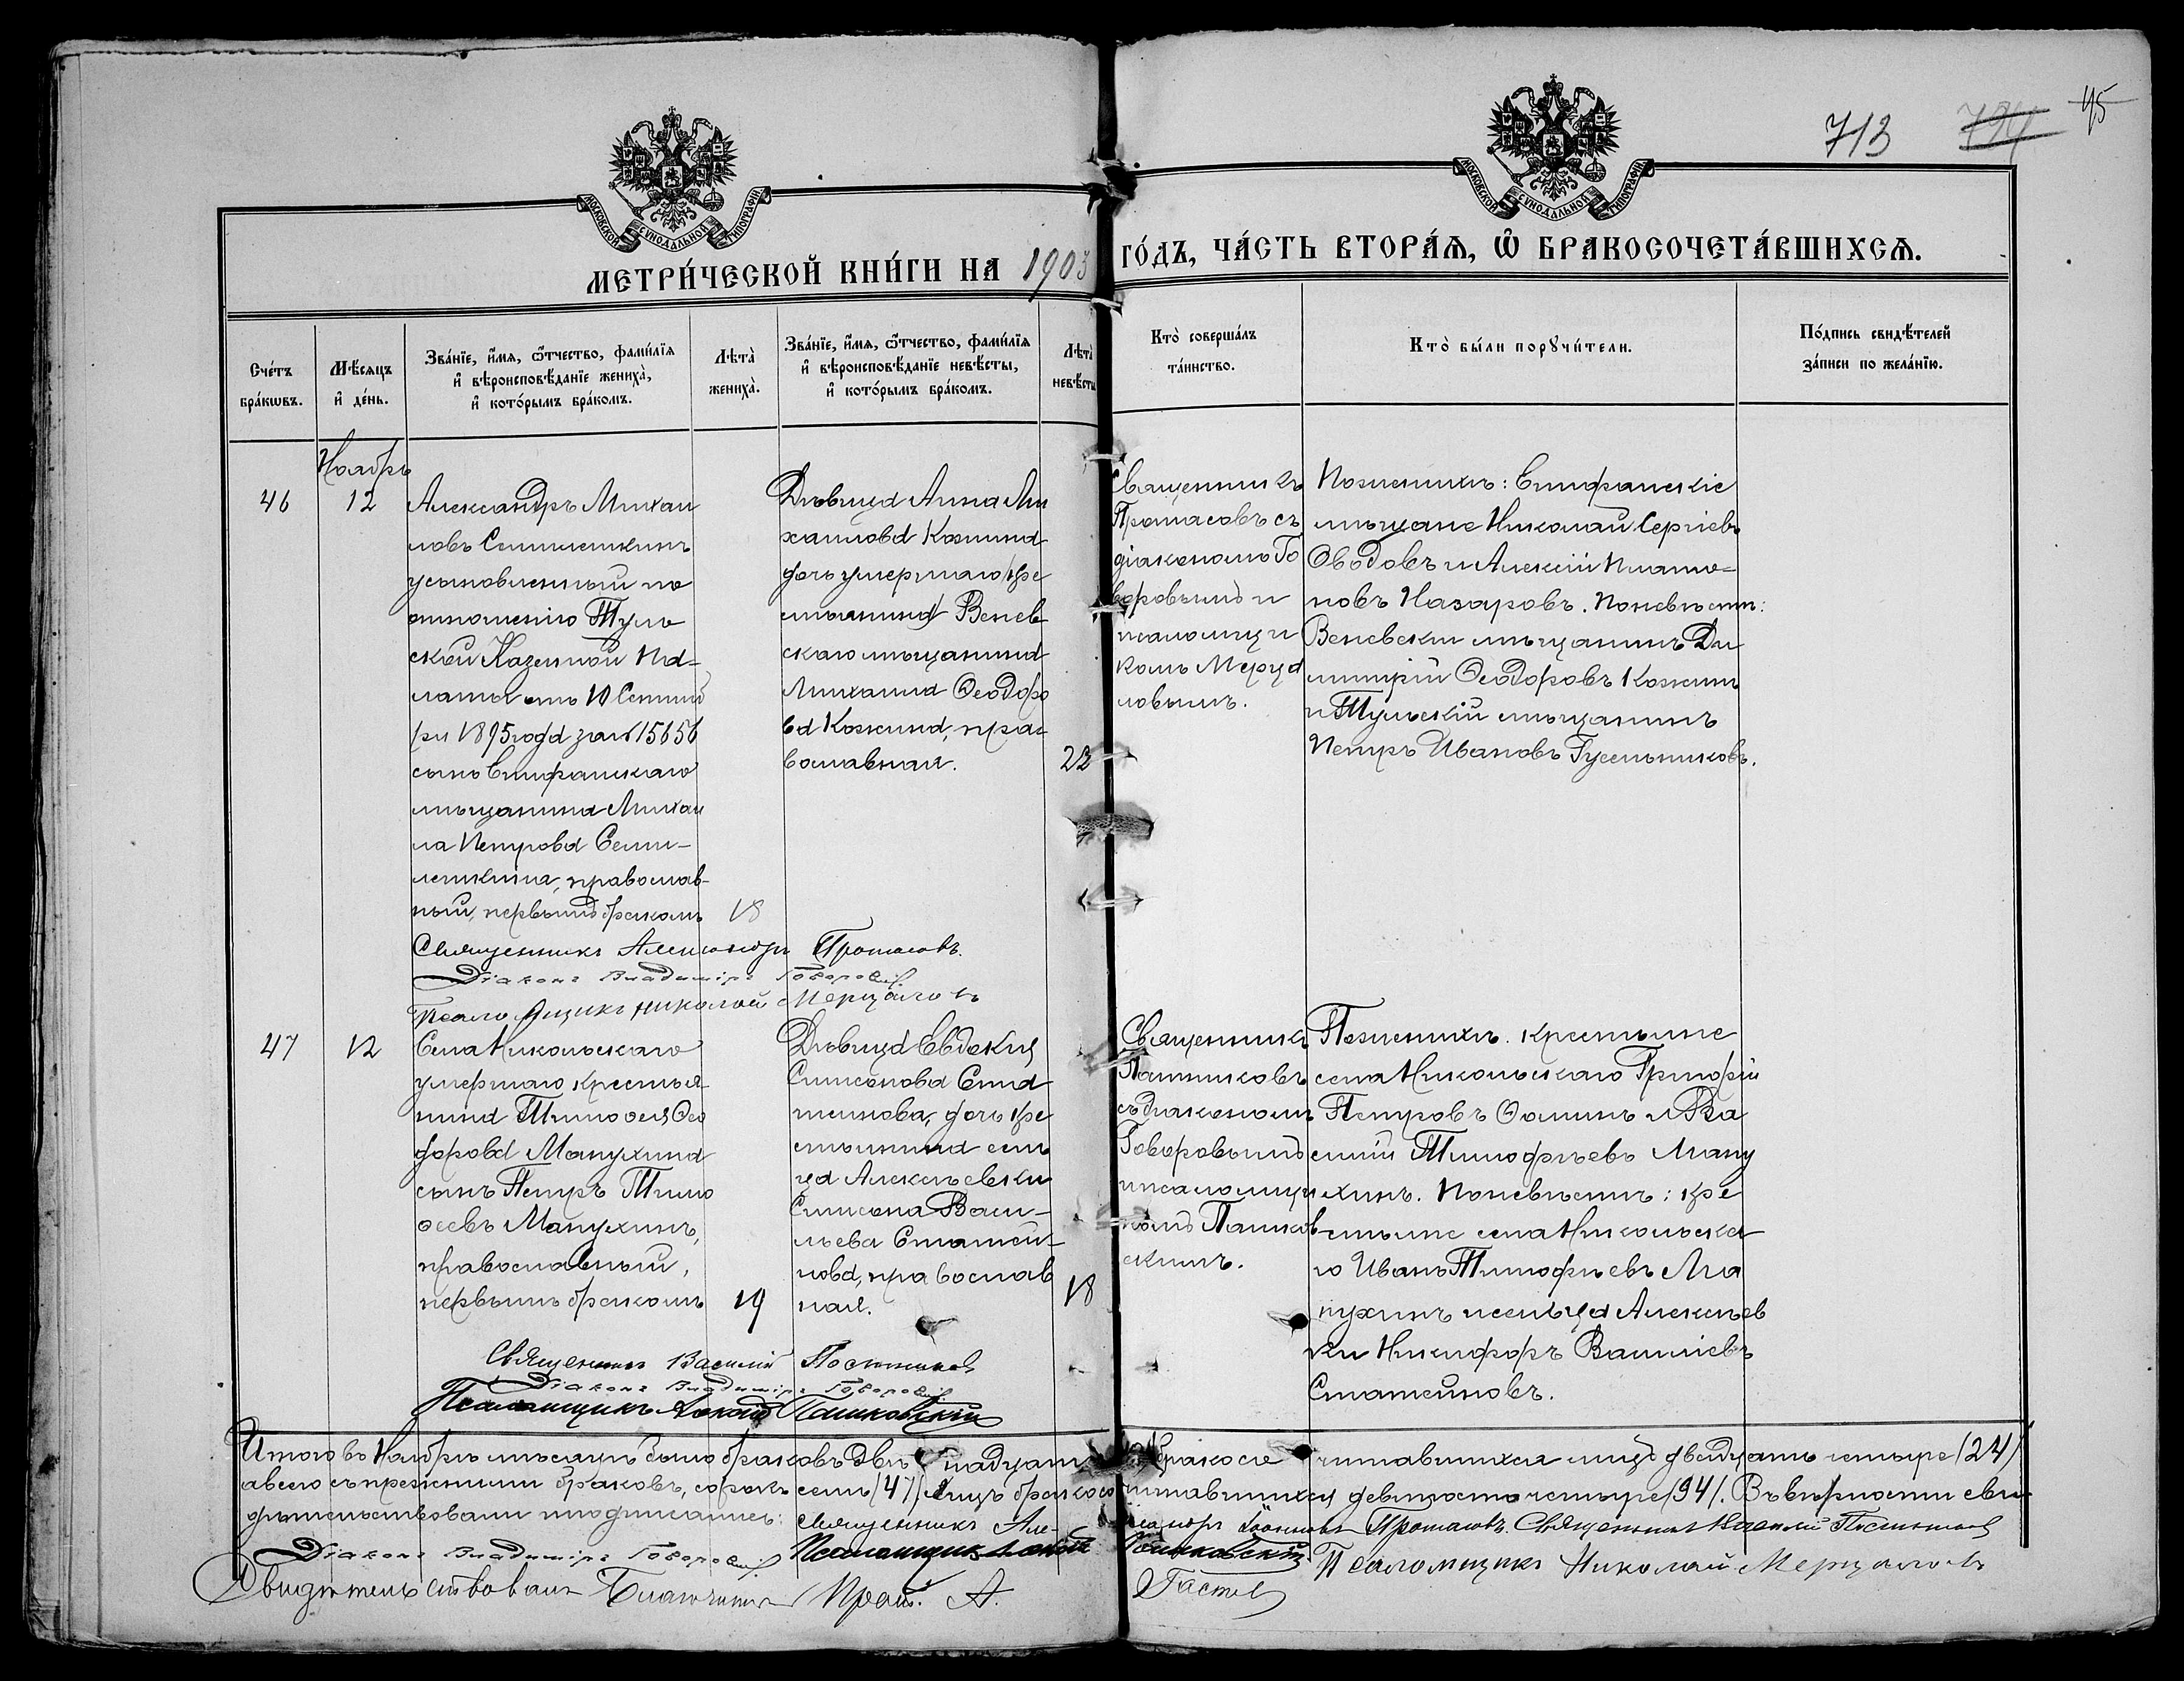 713 724 45
МОСКОВСКОЙ СУНОДАЛЬНОЙ ТИПОГРАФІИ
МОСКОВСКОЙ СУНОДАЛЬНОЙ ТИПОГРАФІИ
МЕТРИ́ЧЕСКОЙ КНИ́ГИ НА 1903 ГО́ДЪ, ЧА́СТЬ ВТОРА́Ѧ, Ѽ БРАКОСОЧЕТА́ВШИХСѦ.
Сче́тъ
бра́кѡвъ.
Мѣ́сѧцъ
и҆ де́нь.
Зва́нїе, и҆́мѧ, ѻ҆́тчество, фами́лїѧ
и҆ вѣроисповѣ́данїе жениха̀,
и҆ кото́рымъ бра́комъ.
Лѣта̀
жениха̀.
Зва́нїе, и҆́мѧ, ѻ҆́тчество, фами́лїѧ
и҆ вѣроисповѣ́данїе невѣ́сты,
и҆ кото́рымъ бра́комъ.
Лѣта̀
невѣ́сты
Кто̀ соверша́лъ
та́инство.
Кто̀ бы́ли порꙋчи́тели.
По́дпись свидѣ́телей
за́писи по жела́нїю.
Ноябрь
46
12
Александръ Михаи
ловъ Семилеткинъ
усыновленный по
отношенію Туль
ской Казенной Па-
латы отъ 10 Сентяб
ря 1895 года за № 15656
сынъ Епифанскаго
мѣщанина Михаи
ла Петрова Семи-
леткина, православ-
ный, первымъ бракомъ
18
Дѣвица Анна Ми
хаилова Кожина
дочь умершаго /кре
стьянина/ Венев
скаго мѣщанина
Михаила Ѳеодоро
ва Кожина, пра-
вославная.
22
Священникъ
Протасовъ съ
діакономъ Го
воровымъ и
псаломщи
комъ Мерца
ловымъ.
По женихѣ: Епифанскіе
мѣщане Николай Сергіевъ
Оводовъ и Алексій Плато=
новъ Назаровъ. По невѣстѣ:
Веневскій мѣщанинъ Ди
митрій Ѳеодоровъ Кожинъ
и Тульскій мѣщанинъ
Петръ Ивановъ Гусельниковъ.
Священникъ Александръ Протасовъ.
Діаконъ Владиміръ Говоровъ
Псаломщикъ Николай Мерцаловъ
47
12
Села Никольскаго
умершаго крестья
нина Тимоѳея Ѳео
дорова Манухина
сынъ Петръ Тимо
ѳеевъ Манухинъ,
православный,
первымъ бракомъ
19
Дѣвица Евдокія
Симеонова Стат
геинова, дочь кре
стьянина сель
ца Алексѣевки
Симеона Васи-
льева Статеи-
нова, православ
ная.
18
Священникъ
Постниковъ
съ діакономъ
Говоровымъ
и псаломщи
комъ Пашков
скимъ.
По женихѣ: крестьяне
села Никольскаго Григорій
Петровъ Ѳоминъ и Ва
силій Тимофѣевъ Ману
хинъ. По невѣстѣ: кре
стьяне села Никольска
го Иванъ Тимофѣевъ Ма
нухинъ и сельца Алексѣев
ки Никифоръ Василіевъ
Статеиновъ.
Священникъ Василій Постниковъ
Діаконъ Владиміръ Говоровъ
Псаломщикъ Пашковскій
Итого въ Ноябрѣ мѣсяцѣ было браковъ двѣнадцать бракосочетавшихся лицъ двадцать четыре /24/
а всего съ прежними браковъ, сорокъ семь /47/ лицъ бракосочетавшихся девяносто четыре /94/. Въ вѣрности сви-
дѣтельствовали и подписались: Священникъ Алек-сандръ Протасовъ. Священникъ Василій Постниковъ
Діаконъ Владиміръ Говоровъ Псаломщикъ Пашковскій Псаломщикъ Николай Мерцаловъ
Свидѣтельствовалъ Благочинный Прот. А.